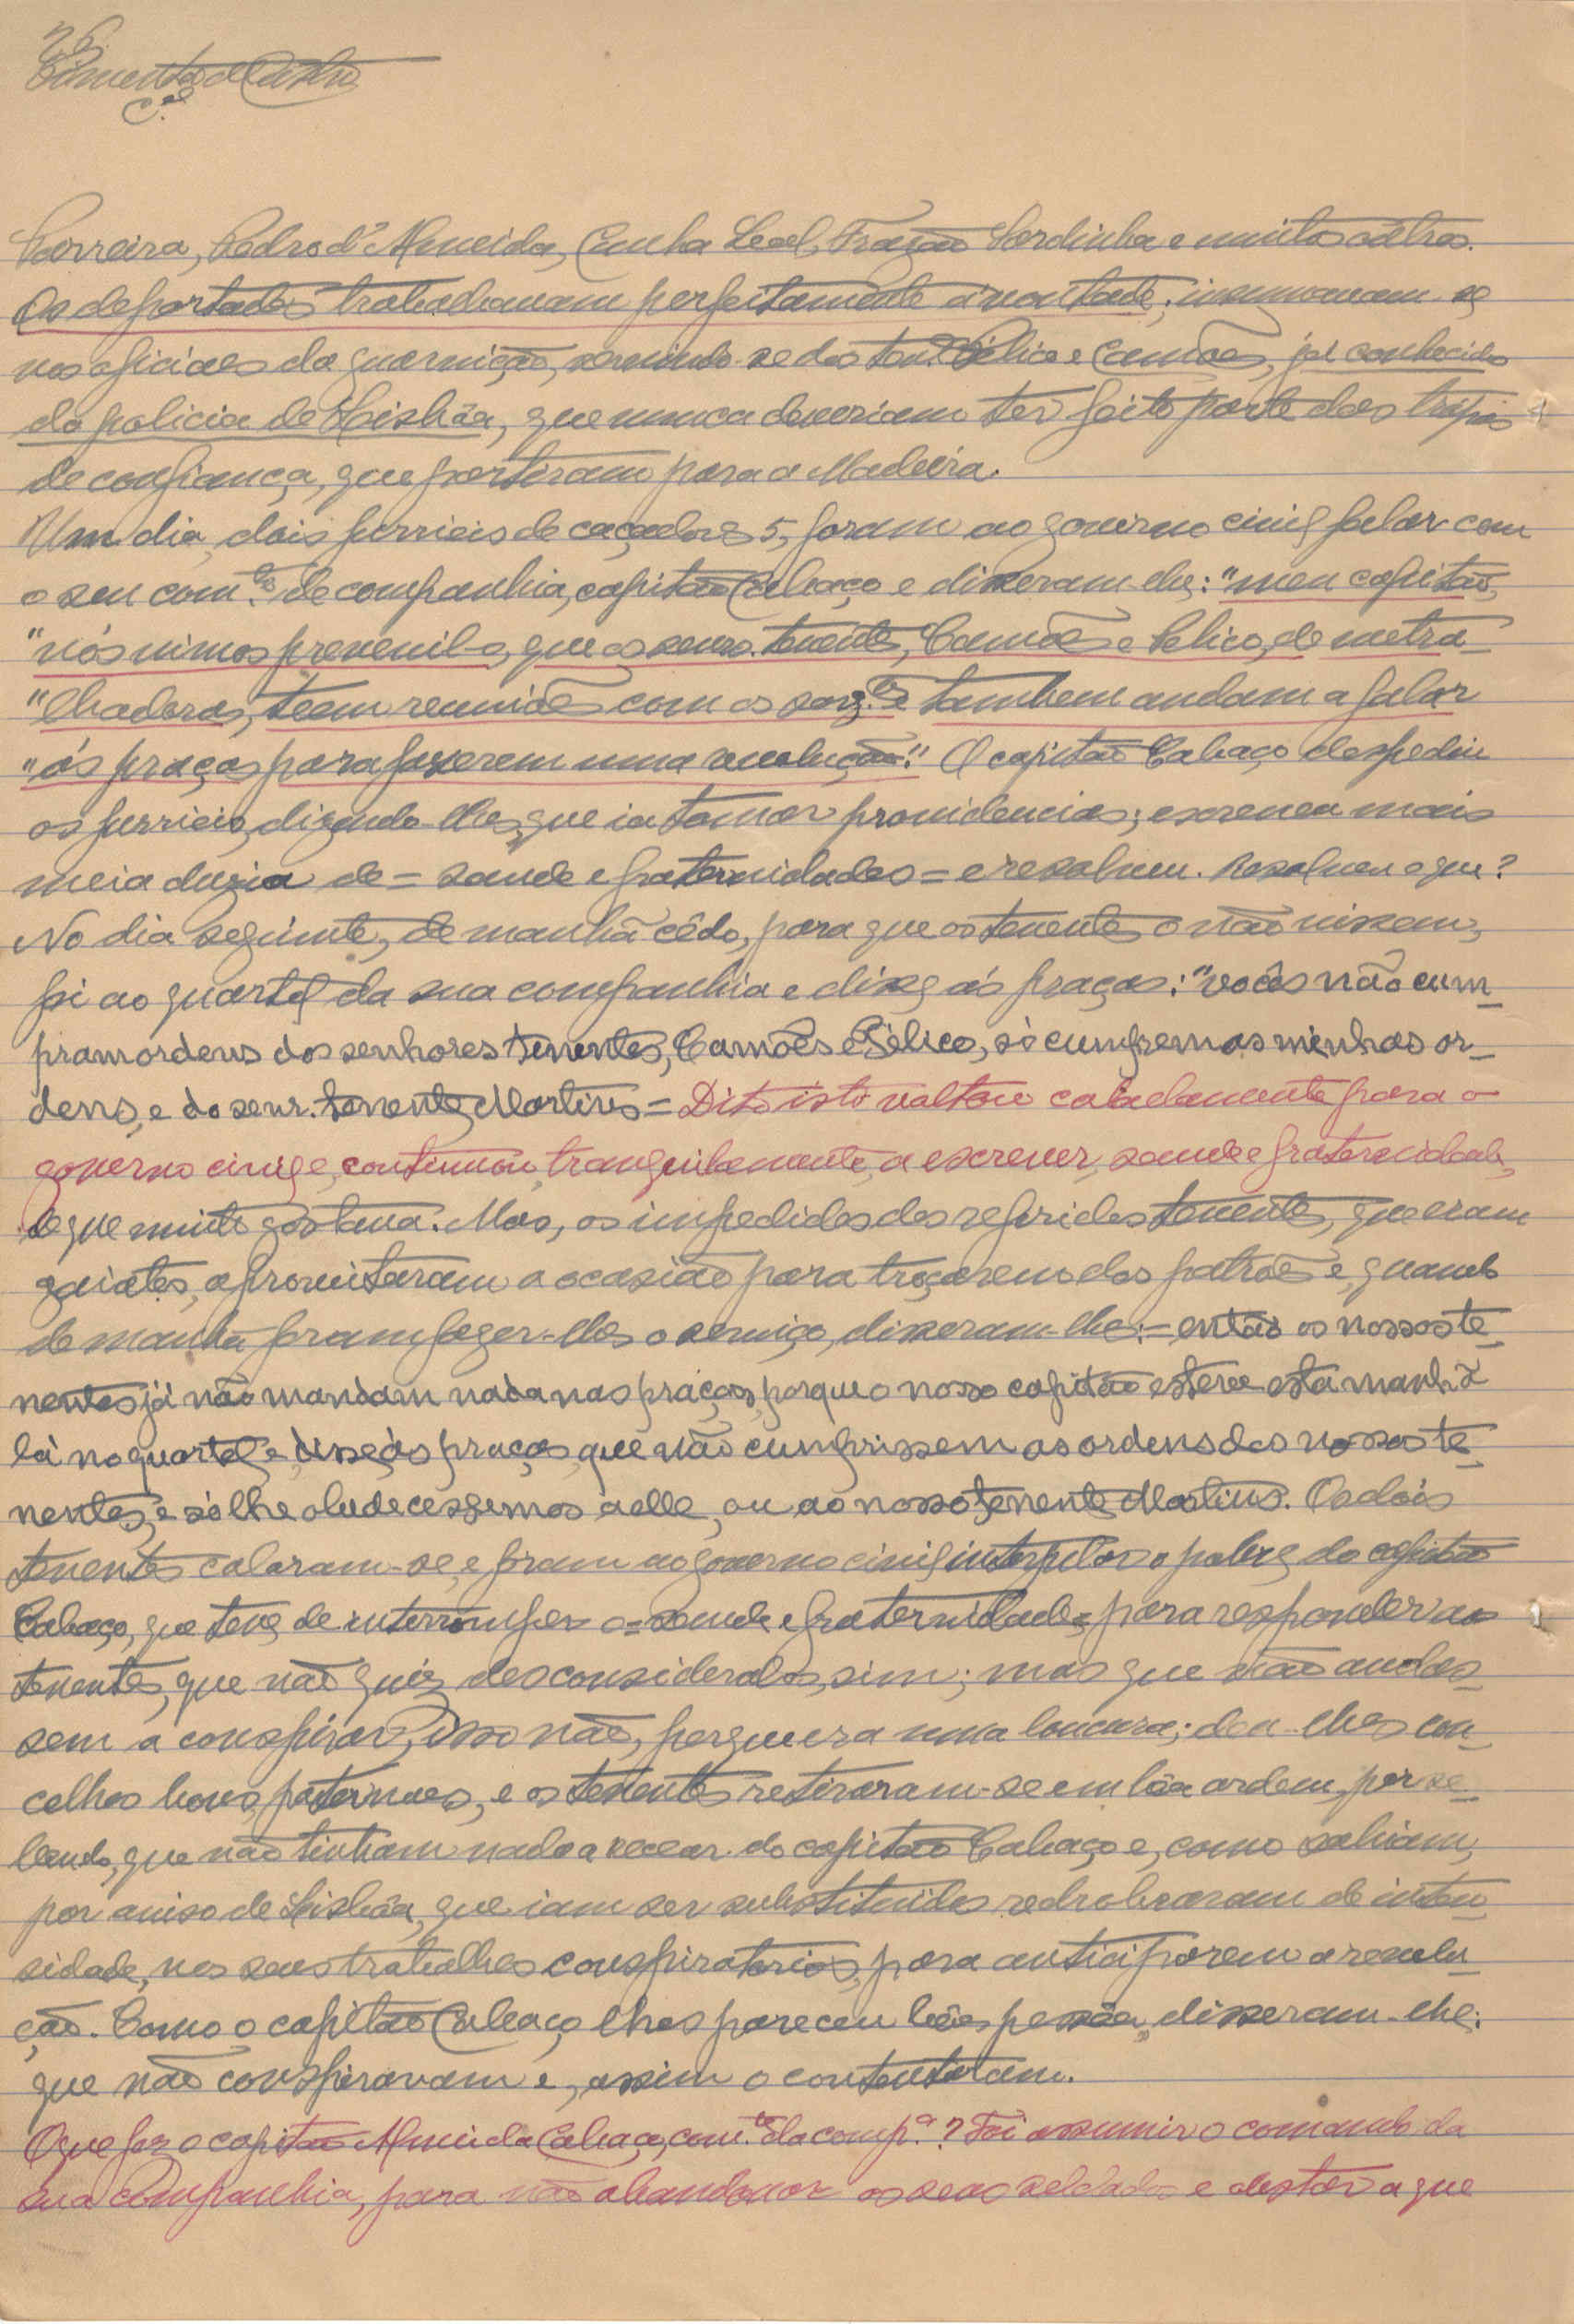 26
Pimenta de Castro
C.el
Ferreira, Pedro d'Almeida, Cunha Leal, Fragão Sardinha e muitos outros.
Os deportados trabalhavam perfeitamente á vontade; insinuavam-se
nos oficiaes da guarnição, servindo-se dos ten.es Pélico e Camões, já conhecidos
da policia de Lisbôa, que nunca deveriam ter feito parte das tropas
de confiança, que partiram para a Madeira.
Um dia, dois furrieis de caçadores 5, foram ao governo civil falar com
o seu com.te de companhia, capitão Cabaço e disseram-lhe: "meu capitão,
"nós vimos prevenil-o, que os senrs. tenentes, Camões e Pelico, de metra-
"lhadoras, teem reuniões com os sarg.tos e tambem andam a falar
"ás praças para fazerem uma revolução." O capitão Cabaço despediu
os furrieis, dizendo-lhes, que ia tomar providencias; escreveu mais
meia duzia de = saude e fraternidades = e resolveu. Resolveu o que?
No dia seguinte, de manhã cêdo, para que os tenentes o não vissem,
foi ao quartel da sua companhia e disse ás praças: "vocês não cum-
pram ordens dos senhores tenentes, Camões e Pélico, só cumprem as minhas or-
dens, e do senr. tenente Martins = Dito isto voltou caladamente para o
governo civil e, continuou, tranquilamente, a escrever, saude e fraternidade,
de que muito gostava. Mas, os impedidos dos referidos tenentes, que eram
gaiatos, aproveitaram a ocasião para troçarem dos patrões e, quando
de manhã foram fazer-lhes o serviço, disseram-lhes: = então os nossos te-
nentes já não mandam nada nas praças, porque o nosso capitão esteve esta manhã
lá no quartel e, disse ás praças, que não cumprissem as ordens dos nossos te-
nentes, e só lhe obedecessemos a elle, ou ao nosso tenente Martins. Os dois
tenentes calaram-se, e foram ao governo civil interpelar o pobre do capitão
Cabaço, que teve de interromper o = saude e fraternidade = para responder aos
tenentes, que não quiz desconsideral-os, sim; mas que não andas-
sem a conspirar, isso não, porque era uma loucura; deu-lhes con-
celhos bons, paternaes, e os tenentes retiraram-se em bôa ordem, perce-
bendo, que não tinham nada a recear do capitão Cabaço e, como sabiam,
por aviso de Lisbôa, que iam ser substituidos redrobraram de inten-
sidade, nos seus trabalhos conspiratorios, para anticiparem a revolu-
ção. Como o capitão Cabaço lhes pareceu bôa pessôa, disseram-lhe:
que não conspiravam e, assim o contentaram.
O que fez o capitão Almeida Cabaço, com.te da comp.a? Foi assumir o comando da
sua companhia, para não abandonar os seus soldados e obstar a que